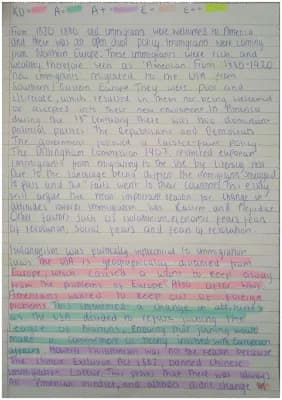 KU - A- A+ E - E++ -
From 1830-1880 old immigrants were welcomed to America
and there was an open door policy. Immigrants were coming
from Northern Europe. These immigrants were rich and
wealthy, therefore seen as "American". From 1880-1920
new immigrants migrated to the USA from
Southern Eastern Europe. They were poor and
illiterate which resulted in them not being welcomed
or accepted into these new environment in America
during the 19th Century there was two dominant
political parties. The Republicans and Democrats.
The government followed a Laissez-faire Policy.
The Dillingham Commission 1907 restricted European
immigrants from migrating to the USA by Literacy test
Due to the language being different the immigrants struggled
to pass and the fails went to their countries. This essay
will argue the most important reason for change in
attitudes towards immigration was Racism and Prejudice.
Other factors such as isolationism, economic fears, fears
of revolution, social fears and fear of revolution.
Isolationism was partially influential to immigration
laws. The USA is geographically distanced from
Europe, which caused a want to keep away
from the problems of Europe. Also after WW1,
Americans wanted to keep out of foreign
problems. This influenced a change in attitudes
as the USA decided to refuse joining the
League of Nations, knowing that joining would
make a commitment to being involved with European
affairs. However Isolationism was not the reason because
The Chinese Exclusion Act 1882, banned Chinese
immigration Labour. This proves that there was always
an "American" mindset, and attitudes didn't change